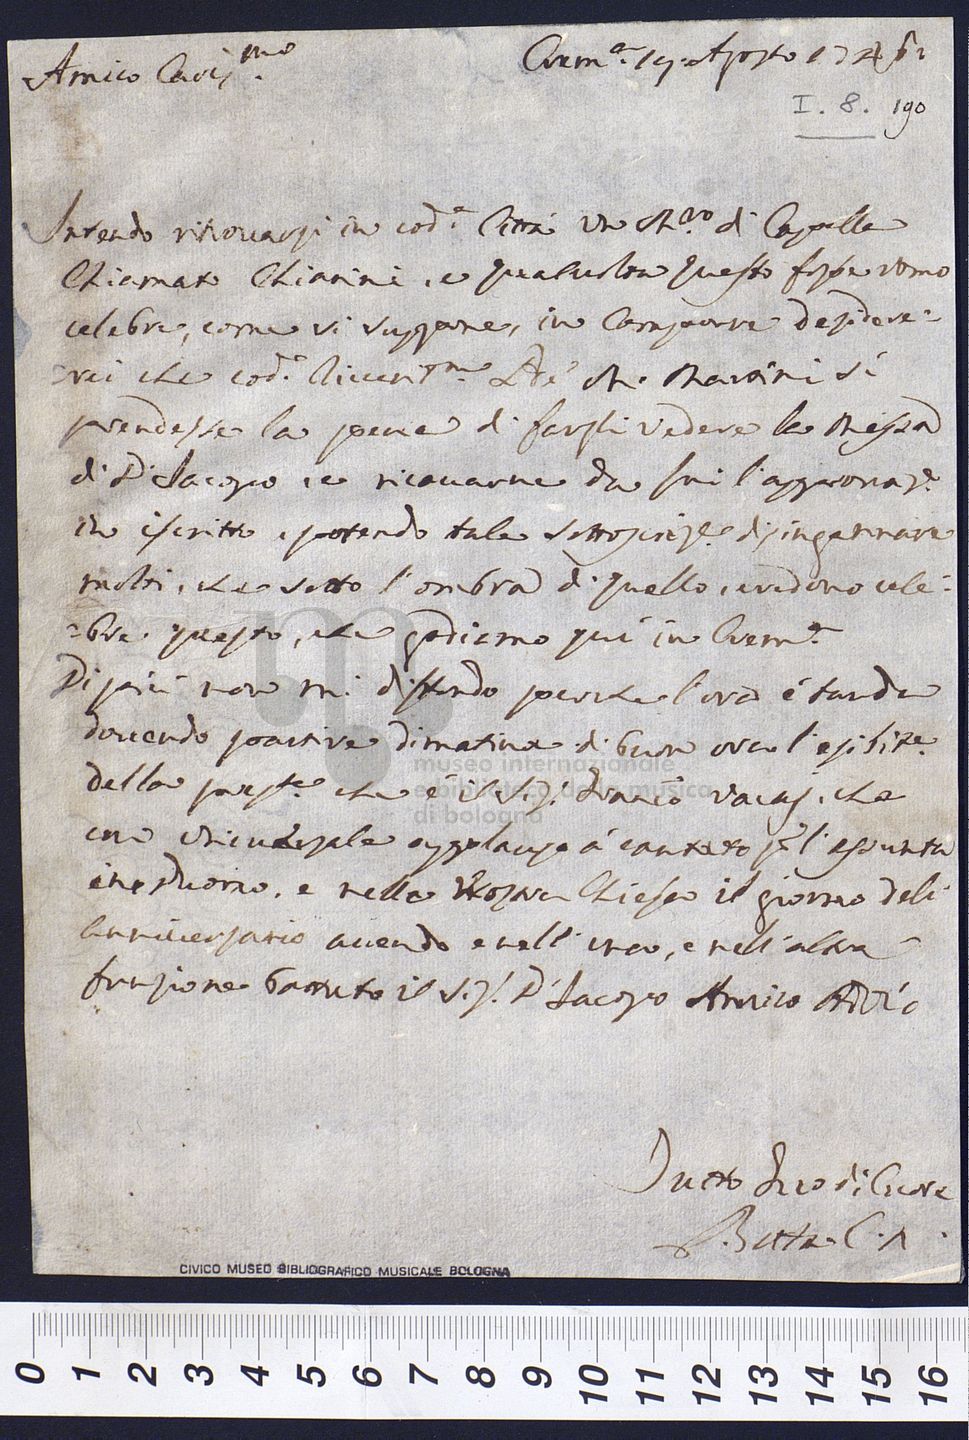 Amico Cariss.mo
Crem.a 19. Agosto 1746
I. 8. 190
Intendo ritrovarsi in cod.a Città un M.ro di Capella
Chiamato Chiarini, e qualvolta questo fosse uomo
celebre, come si suppone, in Comporre desidere-
rei che cod. P. M. Martini si
prendesse la pena di fargli vedere la Messa
di D. Jacopo, e ricavarne da lui l'approvaz.e
in iscritto, potendo tale disingannare
molti, che sotto l'ombra di quello, credono cele-
bre questo, che godiamo qui in Crem.a
Di più non mi distendo perche l'ora é tarda
dovendo partire dimatina di buon ora l'esibit.e
della pres.te che é il Sig.
con universale applauso á cantato p. l'Assunta
in Duomo, e nella Nostra Chiesa il giorno dell'
Anniversario avendo e nell'una, e nell'altra
funzione battuto il Sig. D. Jacopo Amico Adio
Tutto Suo di Cuore
museo internazionale
e biblioteca della musica
di bologna
CIVICO MUSEO BIBLIOGRAFICO MUSICALE BOLOGNA
0 1 2 3 4 5 6 7 8 9 10 11 12 13 14 15 16